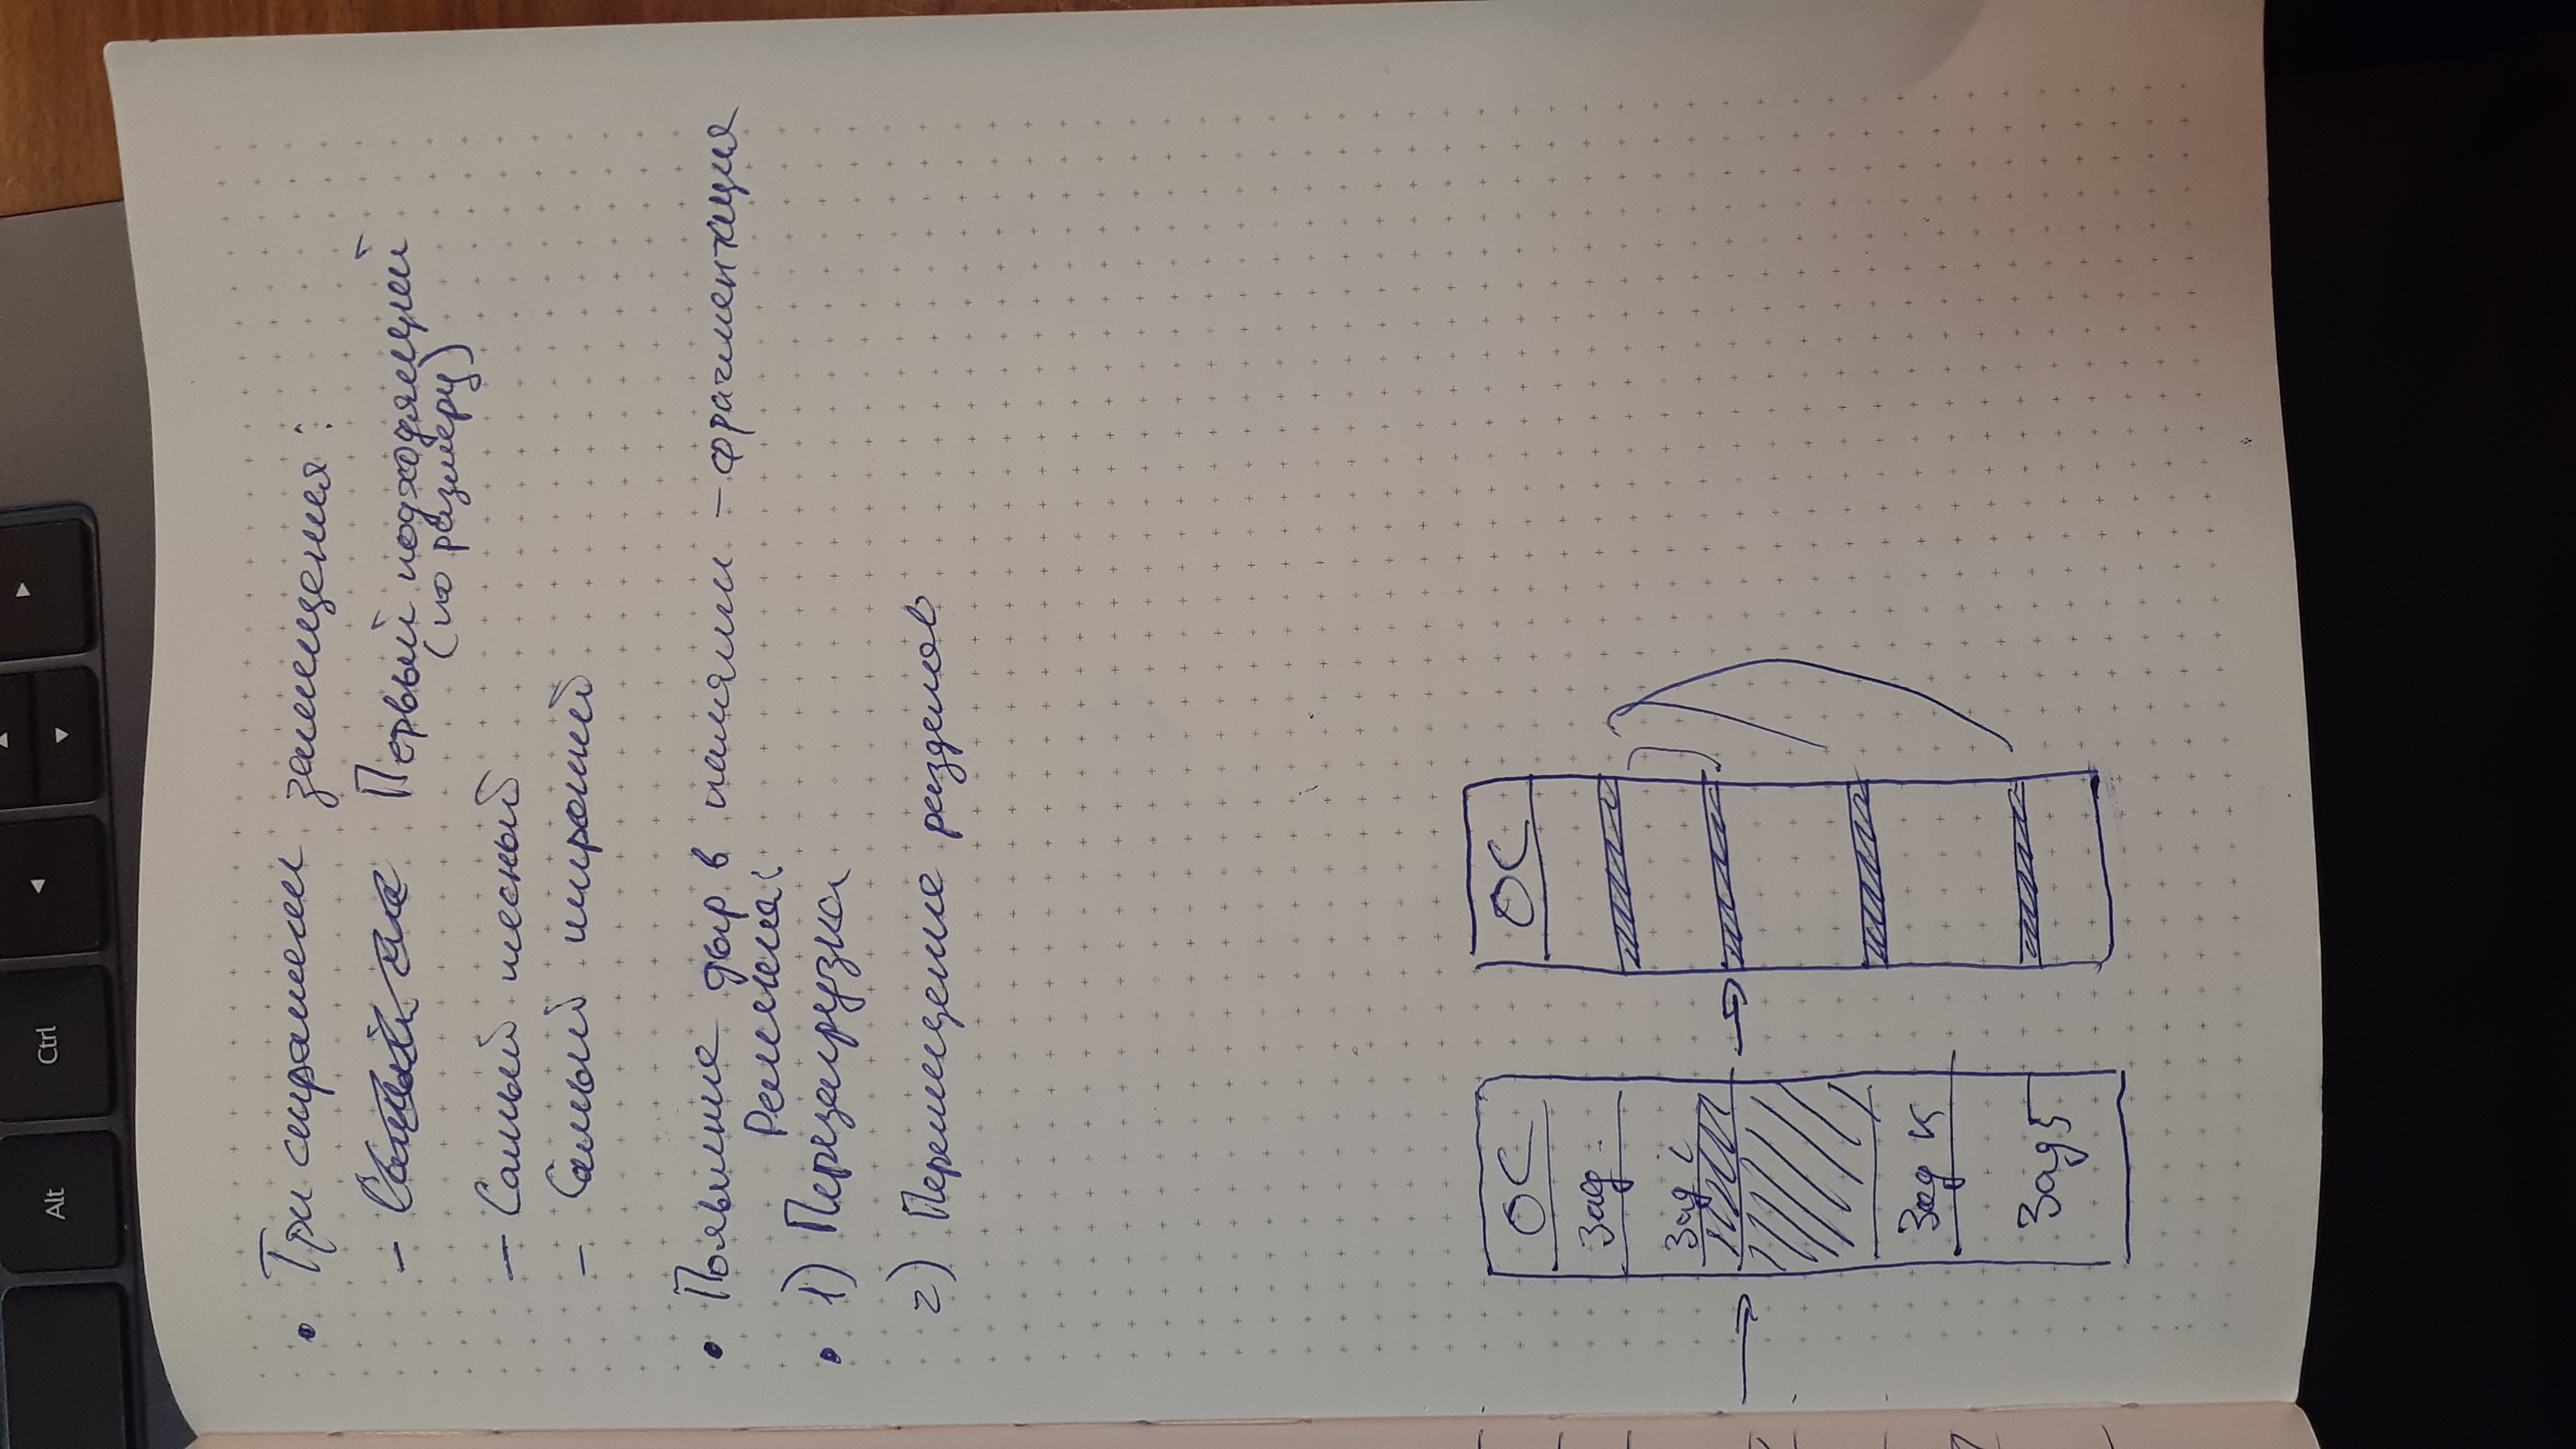 Alt Ctrl ◄ ▲ ▼ ►
• Три стратегии замещения:
- Первый подходящий
(по размеру)
- Самый тесный
- Самый широкий
• Появление дыр в памяти - фрагментация
Решения:
• 1) Перезагрузка
2) Перемещение разделов
ОС ОС
Зад
Зад i
Зад К
Зад 5